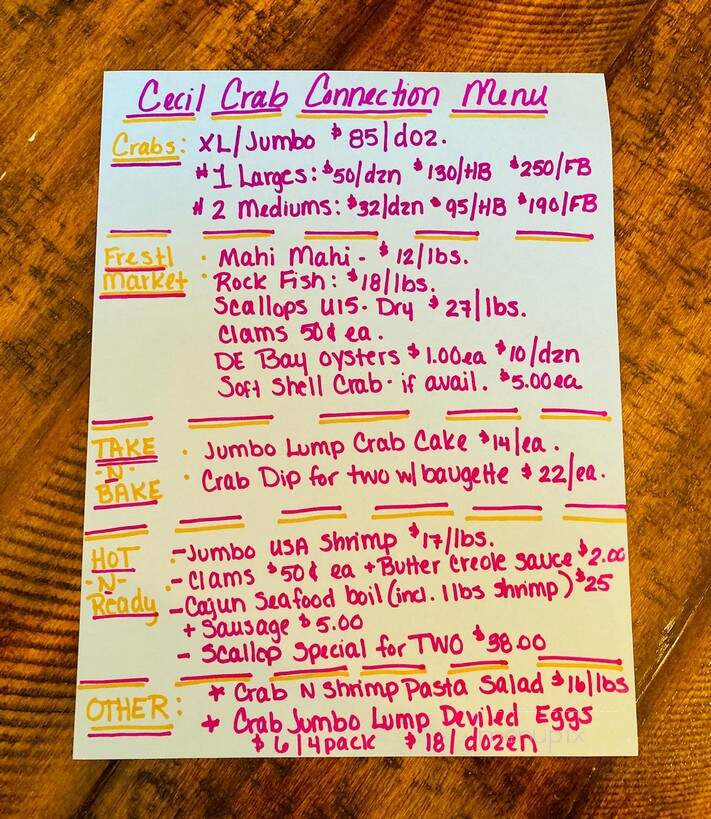 Cecil Crab Connection Menu
Crabs: XL/Jumbo $85/doz.
#1 Larges: $50/dzn $130/HB $250/FB
#2 Mediums: $32/dzn $95/HB $190/FB
Fresh Market · Mahi Mahi - $12/lbs.
· Rock Fish: $18/lbs.
Scallops U15 - Dry $27/lbs.
Clams 50¢ ea.
DE Bay oysters $1.00ea $10/dzn
Soft Shell Crab - if avail. $5.00ea
TAKE -N- BAKE · Jumbo Lump Crab Cake $14/ea.
· Crab Dip for two w/baugette $22/ea.
HOT -N- Ready - Jumbo USA Shrimp $17/lbs.
- Clams $50¢ ea + Butter Creole sauce $2.00
- Cajun Seafood boil (incl. 1 lbs shrimp) $25
+ Sausage $5.00
- Scallop Special for TWO $38.00
OTHER: * Crab N Shrimp Pasta Salad $16/lbs
* Crab Jumbo Lump Deviled Eggs
$6/4pack $18/dozen